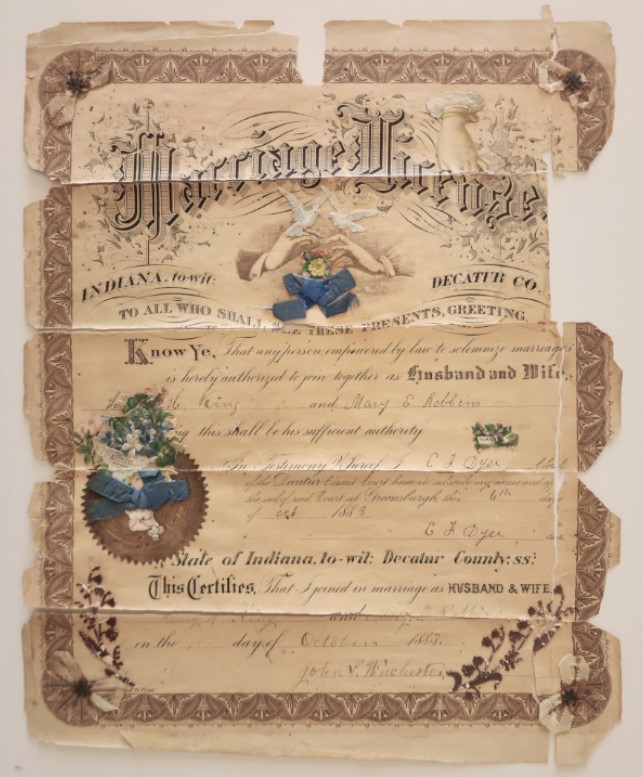 Marriage License.
INDIANA, to-wit: DECATUR CO.
TO ALL WHO SHALL SEE THESE PRESENTS, GREETING.
Know Ye, That any person empowered by law to solemnize marriages
is hereby authorized to join together as Husband and Wife,
H. King and Mary E Robbins
this shall be his sufficient authority
In Testimony Whereof I E F Dyer
of the Decatur Circuit Court hereunto subscribe my name and
the seal of said Court at Greensburgh this 6th day
of Oct 1883
E F Dyer
State of Indiana, to-wit: Decatur County: ss:
This Certifies, That I joined in marriage as HUSBAND & WIFE,
King and
on the day of October 1883.
John S. Winchester